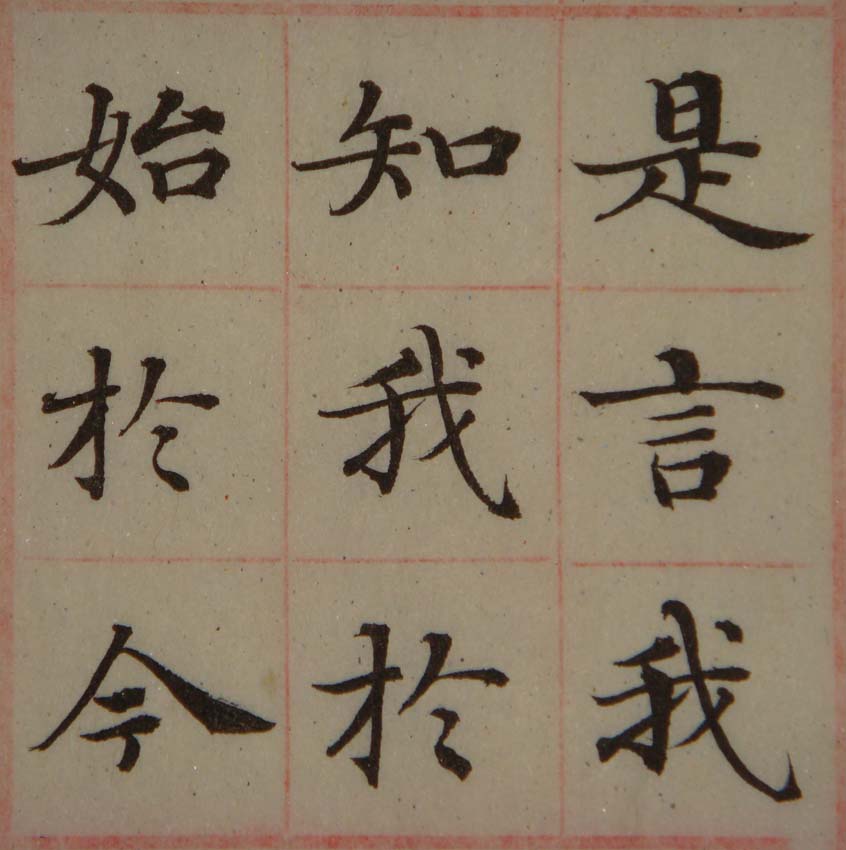 是言我
知我於
始於今